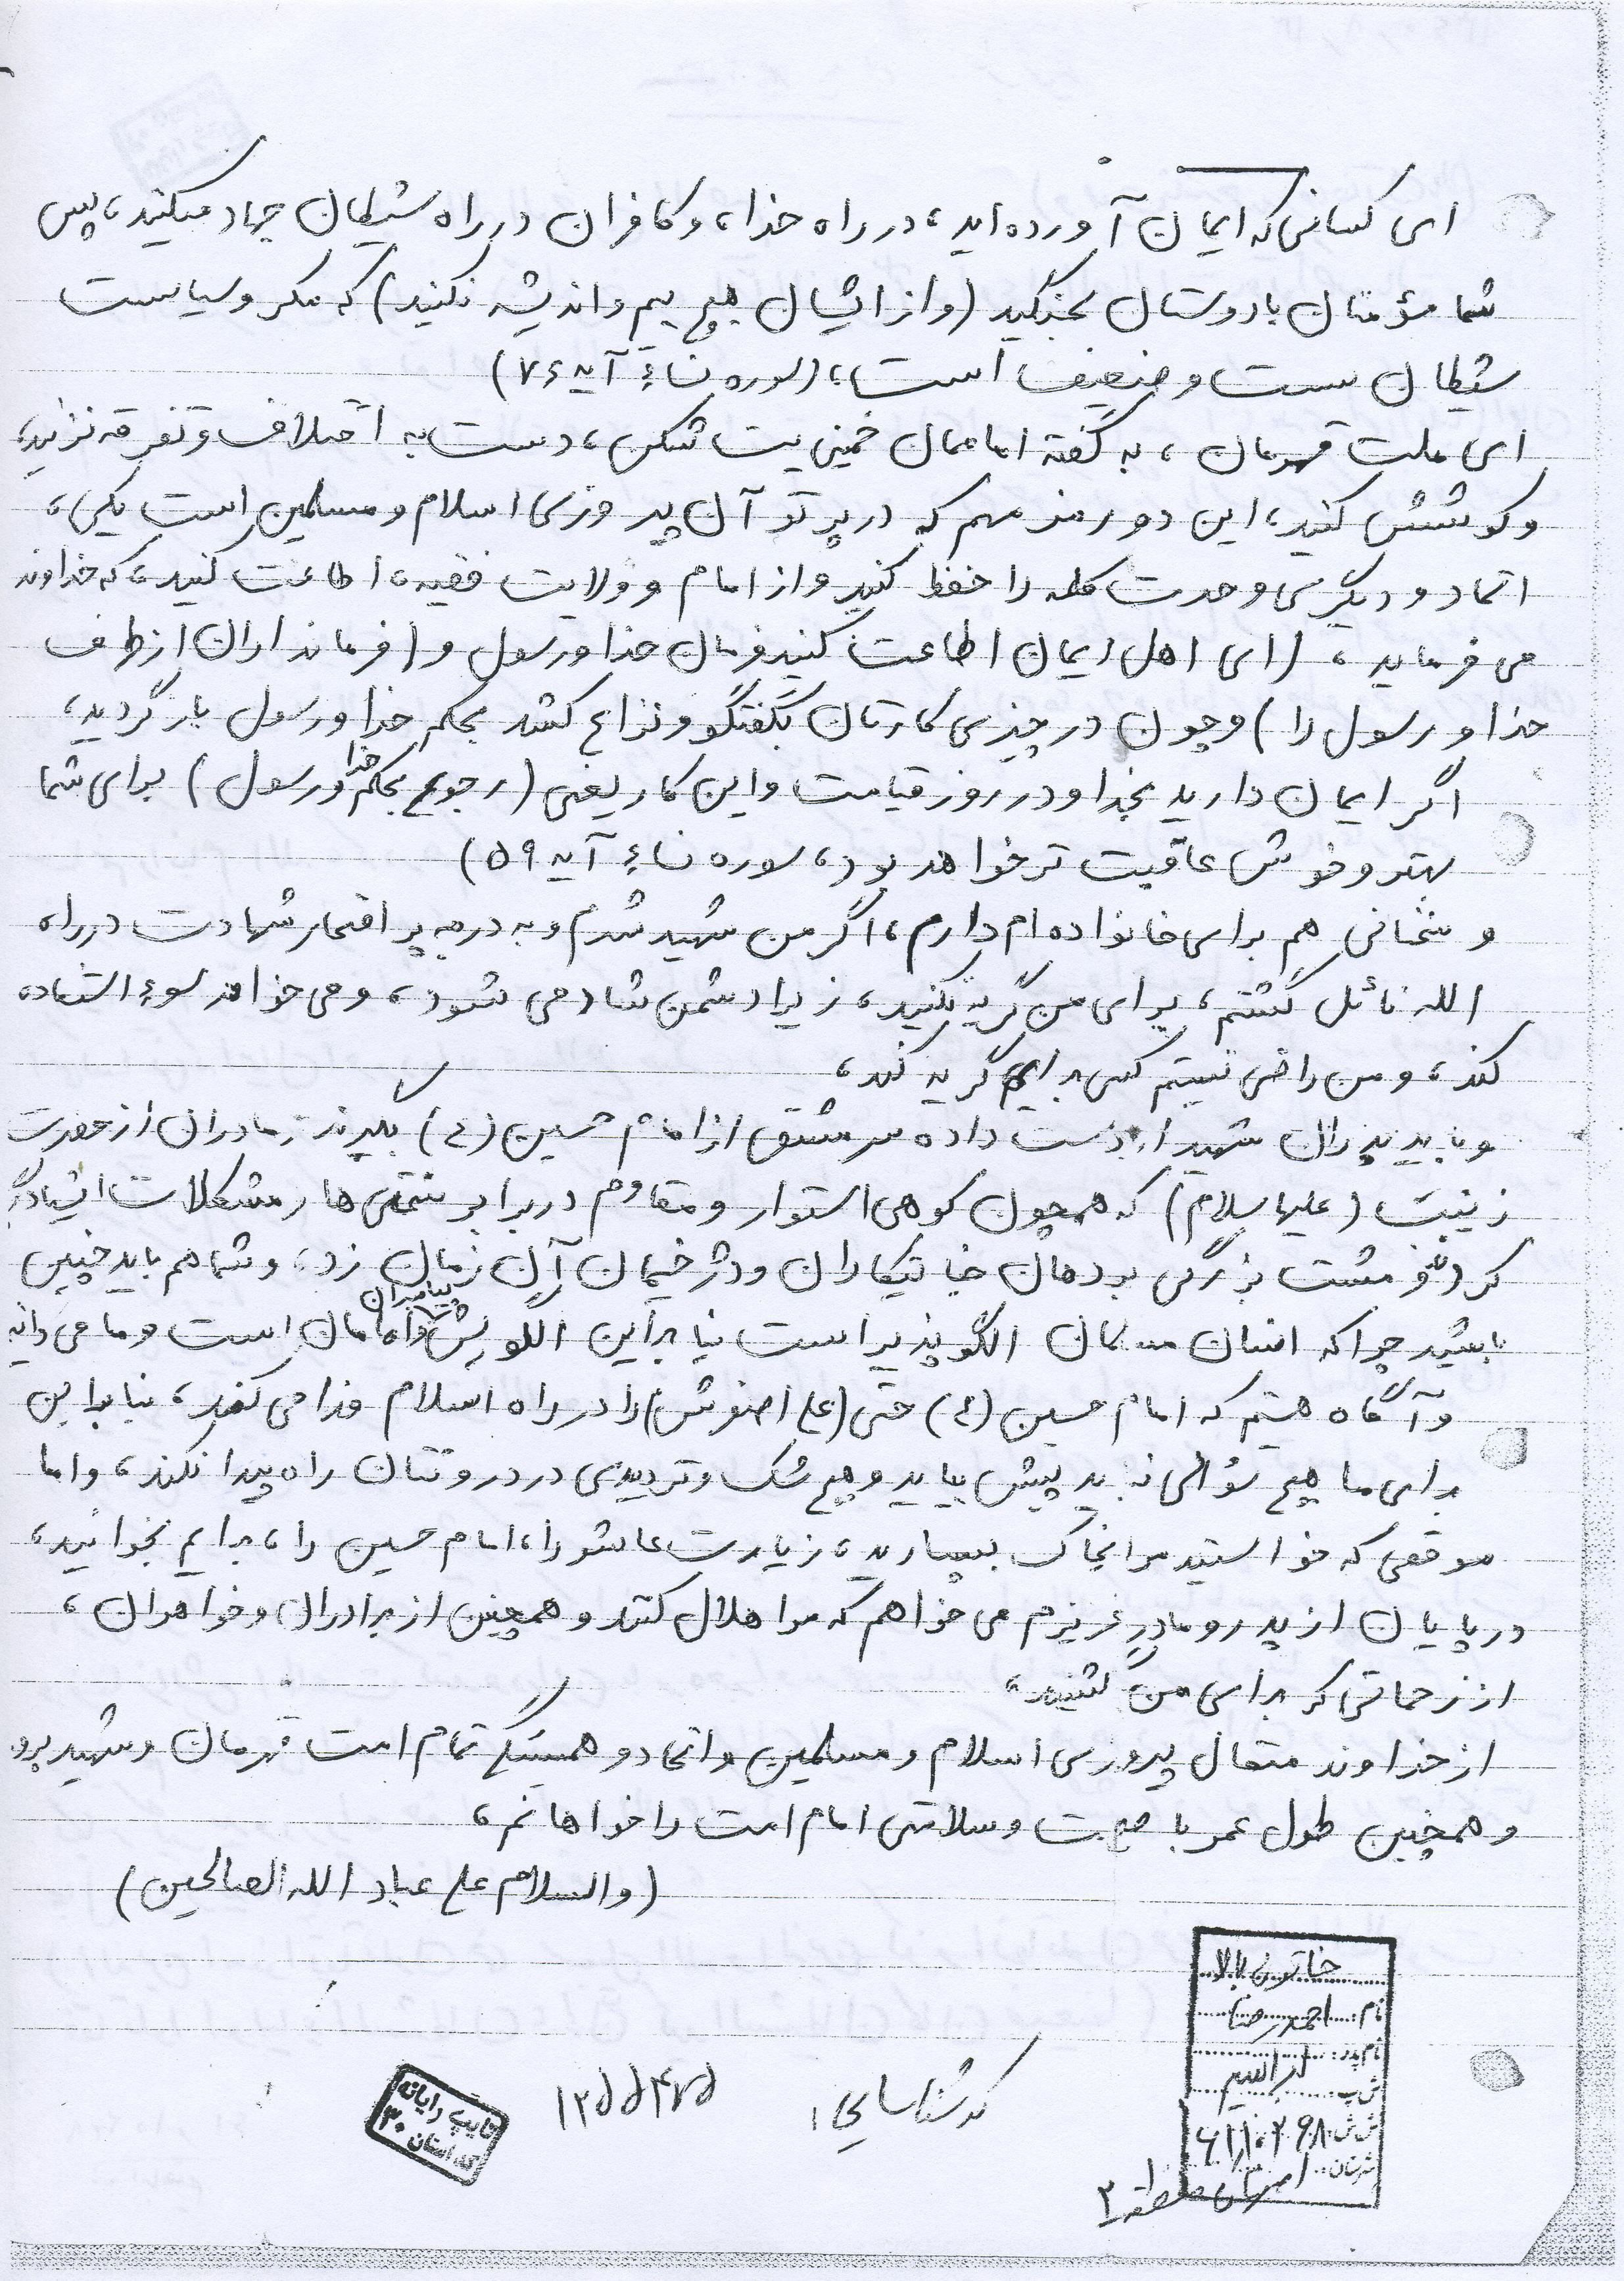 ای کسانی که ایمان آورده اید، در راه خدا، و کافران در راه شیطان جهاد میکنند، پس
شما مؤمنان با دوستان بجنگید (و از ایشان هیچ بیم و اندیشه نکنید) که مکر و سیاست
شیطان سست و ضعیف است، (سوره نساء آیه ۷۶)
ای ملت قهرمان، به گفته اماممان خمینی بت شکن، دست به اختلاف و تفرقه نزنید،
و کوشش کنید، این دو رمز مهم که در پرتو آن پیروزی اسلام و مسلمین است یکی،
اتحاد و دیگری وحدت کلمه را حفظ کنید و از امام و ولایت فقیه، اطاعت کنید، که خداوند
می فرماید، (ای اهل ایمان اطاعت کنید فرمان خدا و رسول و (فرمانداران از طرف
خدا و رسول را) و چون در چیزی کارتان بگفتگو و نزاع کشد بحکم خدا و رسول باز گردید،
اگر ایمان دارید بخدا و در روز قیامت و این کار یعنی (رجوع بحکم خدا و رسول) برای شما
بهتر و خوش عاقبت تر خواهد بود، سوره نساء آیه ۵۹)
و سخنانی هم برای خانواده ام دارم، اگر من شهید شدم و به درجه پر افتخار شهادت در راه
الله نائل گشتم، برای من گریه نکنید، زیرا دشمن شاد می شود، و می خواهد سوء استفاده
کند، و من راضی نیستم کسی برایم گریه کند،
و باید پدران شهید از دست داده سرمشق از امام حسین (ع) بگیرند و مادران از حضرت
زینب (علیها سلام) که همچون کوهی استوار و مقاوم در برابر سختی ها و مشکلات ایستادگی
کرد و مشت بزرگی بر دهان خیانتکاران و دژخیمان آن زمان زد، و شما هم باید چنین
باشید چرا که انسان مسلمان الگو پذیر است بنابراین الگویش پیامبران و امامان است و ما می دانیم
و آگاه هستیم که امام حسین (ع) حتی (علی اصغرش) را در راه اسلام فدا می کند، بنابراین
برای ما هیچ سؤالی نباید پیش بیاید و هیچ شک و تردیدی در درونتان راه پیدا نکند، و اما
موقعی که خواستید مرا بخاک بسپارید، زیارت عاشورا، امام حسین را، برایم بخوانید،
در پایان از پدر و مادر عزیزم می خواهم که مرا هلال کنند و همچنین از برادران و خواهران،
از زحماتی که برای من کشیدند،
از خداوند متعال پیروزی اسلام و مسلمین و اتحاد و همبستگی تمام امت قهرمان و شهید پرور
و همچنین طول عمر با صحت و سلامتی امام امت را خواهانم،
(والسلام علی عباد الله الصالحین)
خاتون بالا
نام: احمدرضا
نام پدر: ابراهیم
ش پ:
ش ش:
شهرستان: اصفهان منطقه ۲
کد شناسایی:
۱۲۵۵۴۷۵
تایپ رایانه
کد استان ۳۰